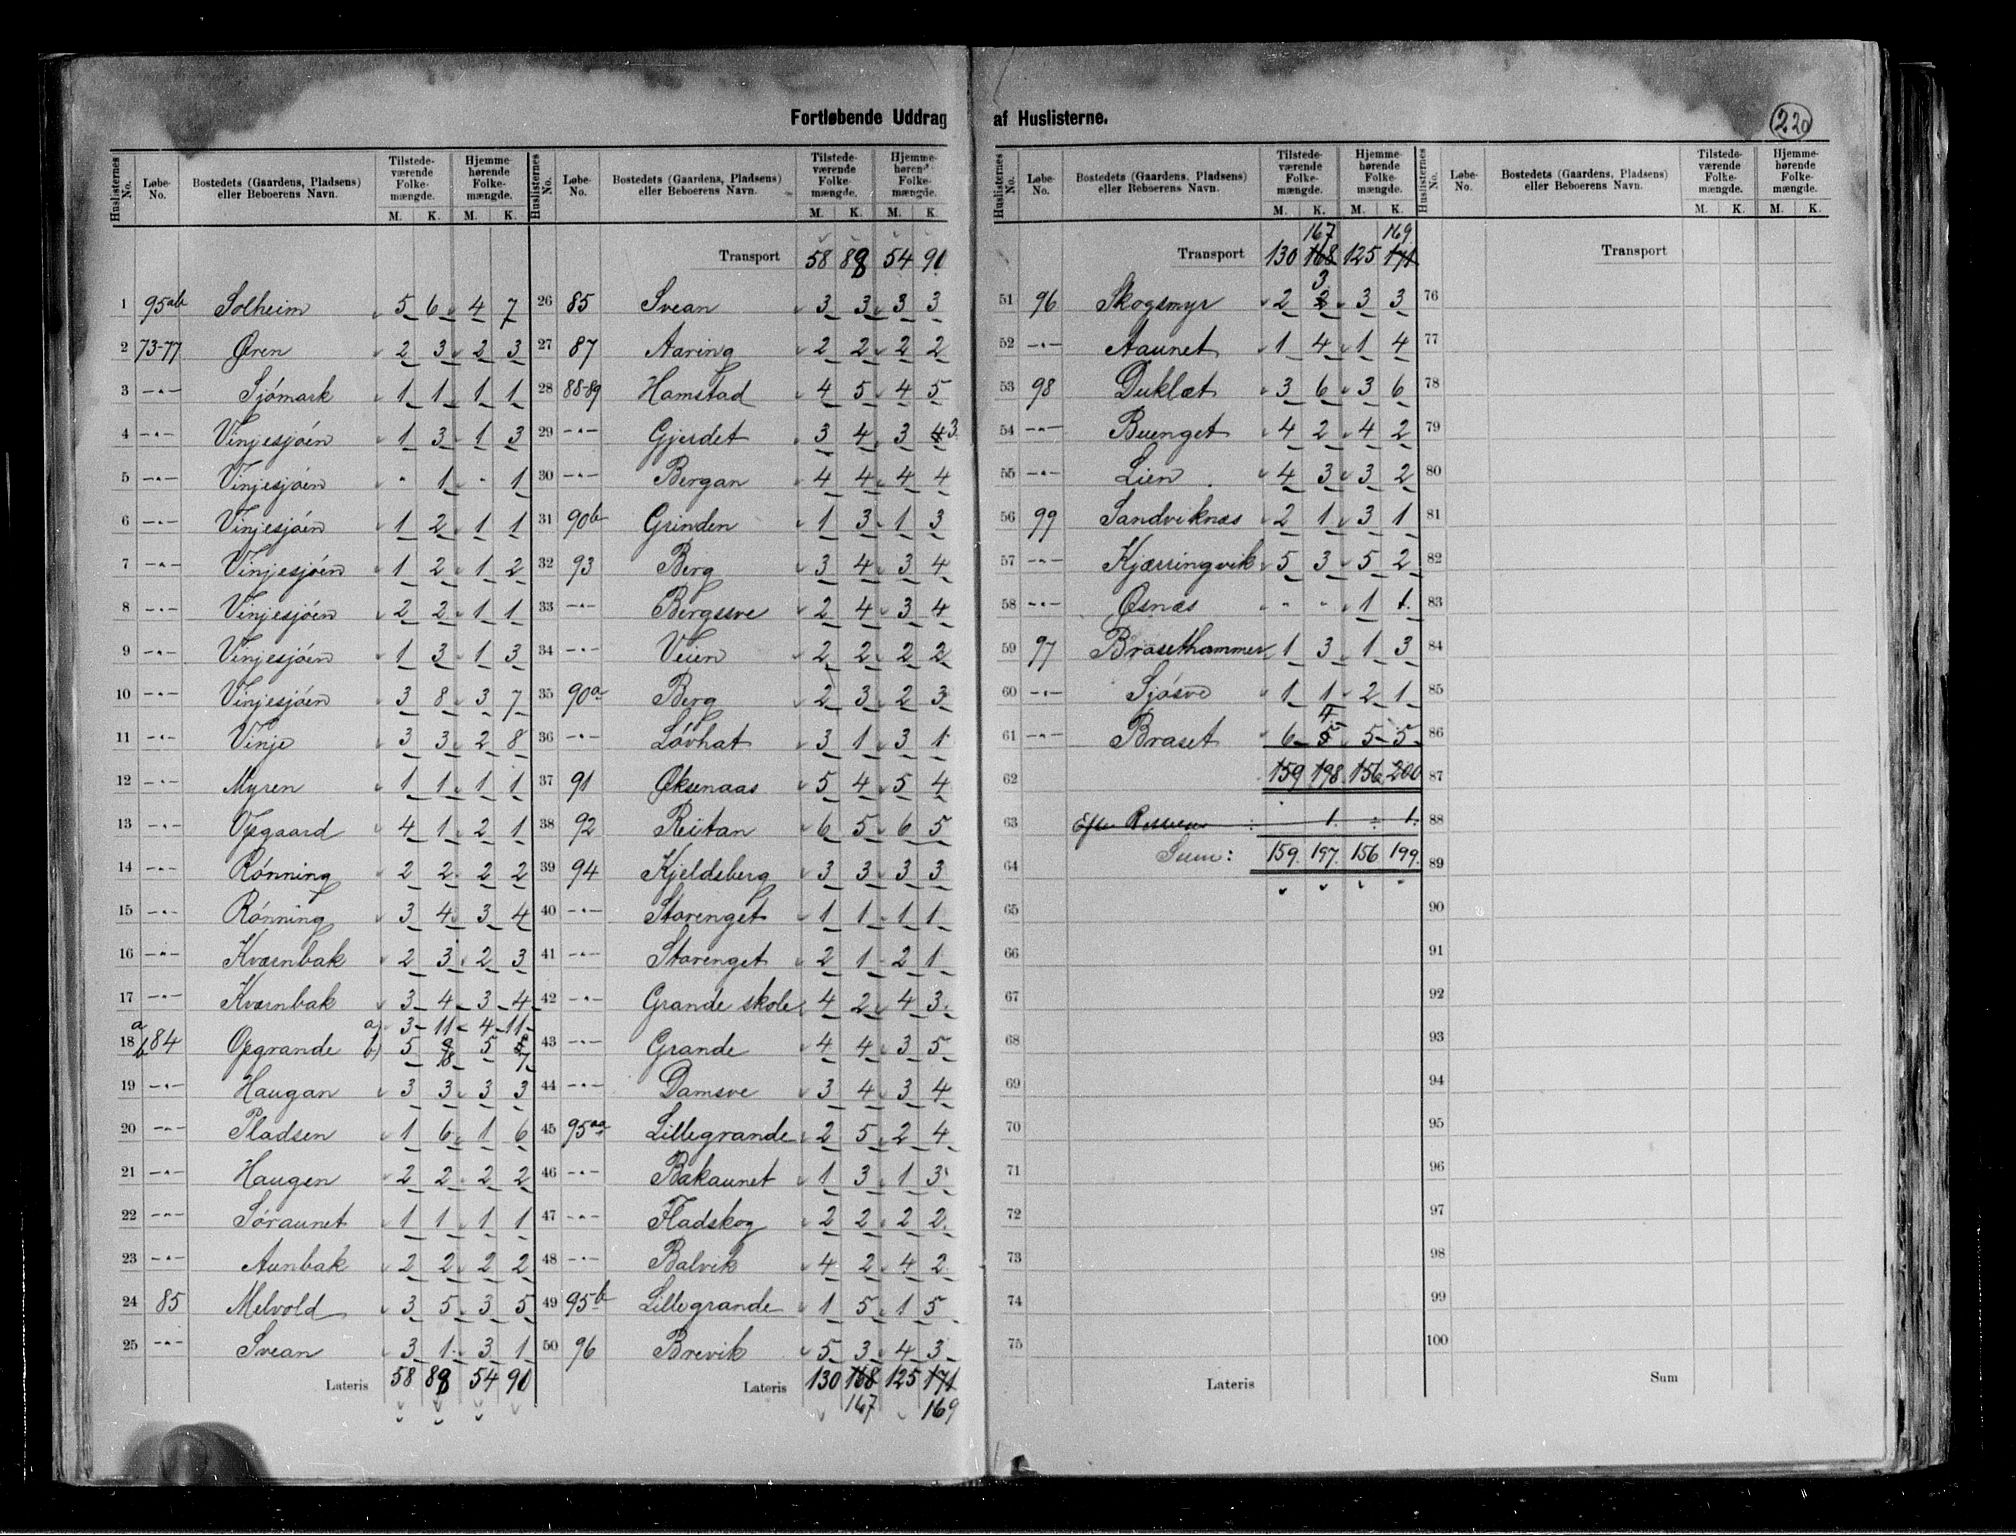 Fortløbende Uddrag af Huslisterne.
220
Huslisternes No. Løbe-No. Bostedets (Gaardens, Pladsens) eller Beboerens Navn. Tilstedeværende Folkemængde. M. K. Hjemmehørende Folkemængde. M. K.
1 95ab Solheim 5 6 4 7
2 73-77 Øren 2 3 2 3
3 -"- Sjómark 1 1 1 1
4 -"- Vinjesjóen 1 3 1 3
5 -"- Vinjesjóen " 1 " 1
6 -"- Vinjesjóen 1 2 1 1
7 -"- Vinjesjóen 1 2 1 2
8 -"- Vinjesjóen 2 2 1 1
9 -"- Vinjesjóen 1 3 1 3
10 -"- Vinjesjóen 3 8 3 7
11 -"- Vinje 3 3 2 8
12 -"- Myren 1 1 1 1
13 -"- Opgaard 4 1 2 1
14 -"- Rónning 2 2 2 2
15 -"- Rónning 3 4 3 4
16 -"- Kværnbak 2 3 2 3
17 -"- Kværnbak 3 4 3 4
a a) 3 11 4 11
18 b 84 Opgrande b) 5 8 5 7
19 -"- Haugan 3 3 3 3
20 -"- Pladsen 1 6 1 6
21 -"- Haugen 2 2 2 2
22 -"- Sóraunet 1 1 1 1
23 -"- Aunbak 2 2 2 2
24 85 Melvold 3 5 3 5
25 -"- Svean 3 1 3 1
Lateris 58 88 54 90
Huslisternes No. Løbe-No. Bostedets (Gaardens, Pladsens) eller Beboerens Navn. Tilstedeværende Folkemængde. M. K. Hjemmehørende Folkemængde. M. K.
Transport 58 88 54 90
26 85 Svean 3 3 3 3
27 87 Aaring 2 2 2 2
28 88-89 Hamstad 4 5 4 5
29 -"- Gjerdet 3 4 3 4 3
30 -"- Bergan 4 4 4 4
31 90b Grinden 1 3 1 3
32 93 Berg 3 4 3 4
33 -"- Bergssve 2 4 3 4
34 -"- Veien 2 2 2 2
35 90a Berg 2 3 2 3
36 -"- Lóvhat 3 1 3 1
37 91 Øksenaas 5 4 5 4
38 92 Reitan 6 5 6 5
39 94 Kjeldsberg 3 3 3 3
40 -"- Storenget 1 1 1 1
41 -"- Storenget 2 1 2 1
42 -"- Grande skole 4 2 4 3
43 -"- Grande 4 4 3 5
44 -"- Damsve 3 4 3 4
45 95aa Lillegrande 2 5 2 4
46 -"- Bakaunet 1 3 1 3
47 -"- Fladskog 2 2 2 2
48 -"- Balvik 4 2 4 2
49 95b Lillegrande 1 5 1 5
50 96 Brevik 5 3 4 3
Lateris 130 168 125 171
167 169
Huslisternes No. Løbe-No. Bostedets (Gaardens, Pladsens) eller Beboerens Navn. Tilstedeværende Folkemængde. M. K. Hjemmehørende Folkemængde. M. K.
167 169
Transport 130 168 125 171
3
51 96 Skogsmyr 2 2 3 3
52 -"- Aaunet 1 4 1 4
53 98 Duklæt 3 6 3 6
54 -"- Buenget 4 2 4 2
55 -"- Lien 4 3 3 2
56 99 Sandviknæs 2 1 3 1
57 -"- Kjærringvik 5 3 5 2
58 -"- Øsnæs " " 1 1
59 97 Brasethammer 1 3 1 3
60 -"- Sjósve 1 1 2 1
4
61 -"- Braset 6 5 5 5
62 159 198 156 200
63 Efter 1 1
64 Sum: 159 197 156 199
65
66
67
68
69
70
71
72
73
74
75
Lateris
Huslisternes No. Løbe-No. Bostedets (Gaardens, Pladsens) eller Beboerens Navn. Tilstedeværende Folkemængde. M. K. Hjemmehørende Folkemængde. M. K.
Transport
76
77
78
79
80
81
82
83
84
85
86
87
88
89
90
91
92
93
94
95
96
97
98
99
100
Sum